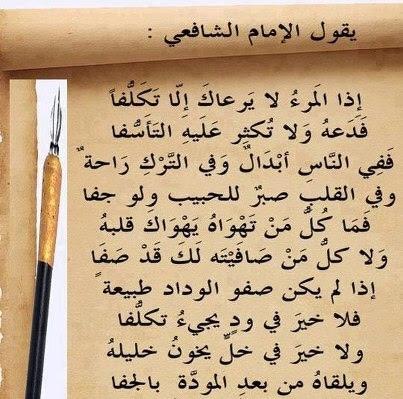 يقول الإمام الشافعي :
إِذا المَرءُ لا يَرعاكَ إِلّا تَكَلُّفاً
فَدَعهُ وَلا تُكثِر عَلَيهِ التَأَسُّفا
فَفِي النَّاسِ أبْدَالٌ وَفي التَّرْكِ رَاحة ٌ
وفي القلبِ صبرٌ للحبيب ولو جفا
فَمَا كُلُّ مَنْ تَهْوَاهُ يَهْوَاكَ قلبهُ
وَلا كلُّ مَنْ صَافَيْتَه لَكَ قَدْ صَفَا
إذا لم يكن صفو الوداد طبيعة ً
فلا خيرَ في ودٍ يجيءُ تكلُّفا
ولا خيرَ في خلٍّ يخونُ خليلهُ
ويلقاهُ من بعدِ المودَّة ِ بالجفا